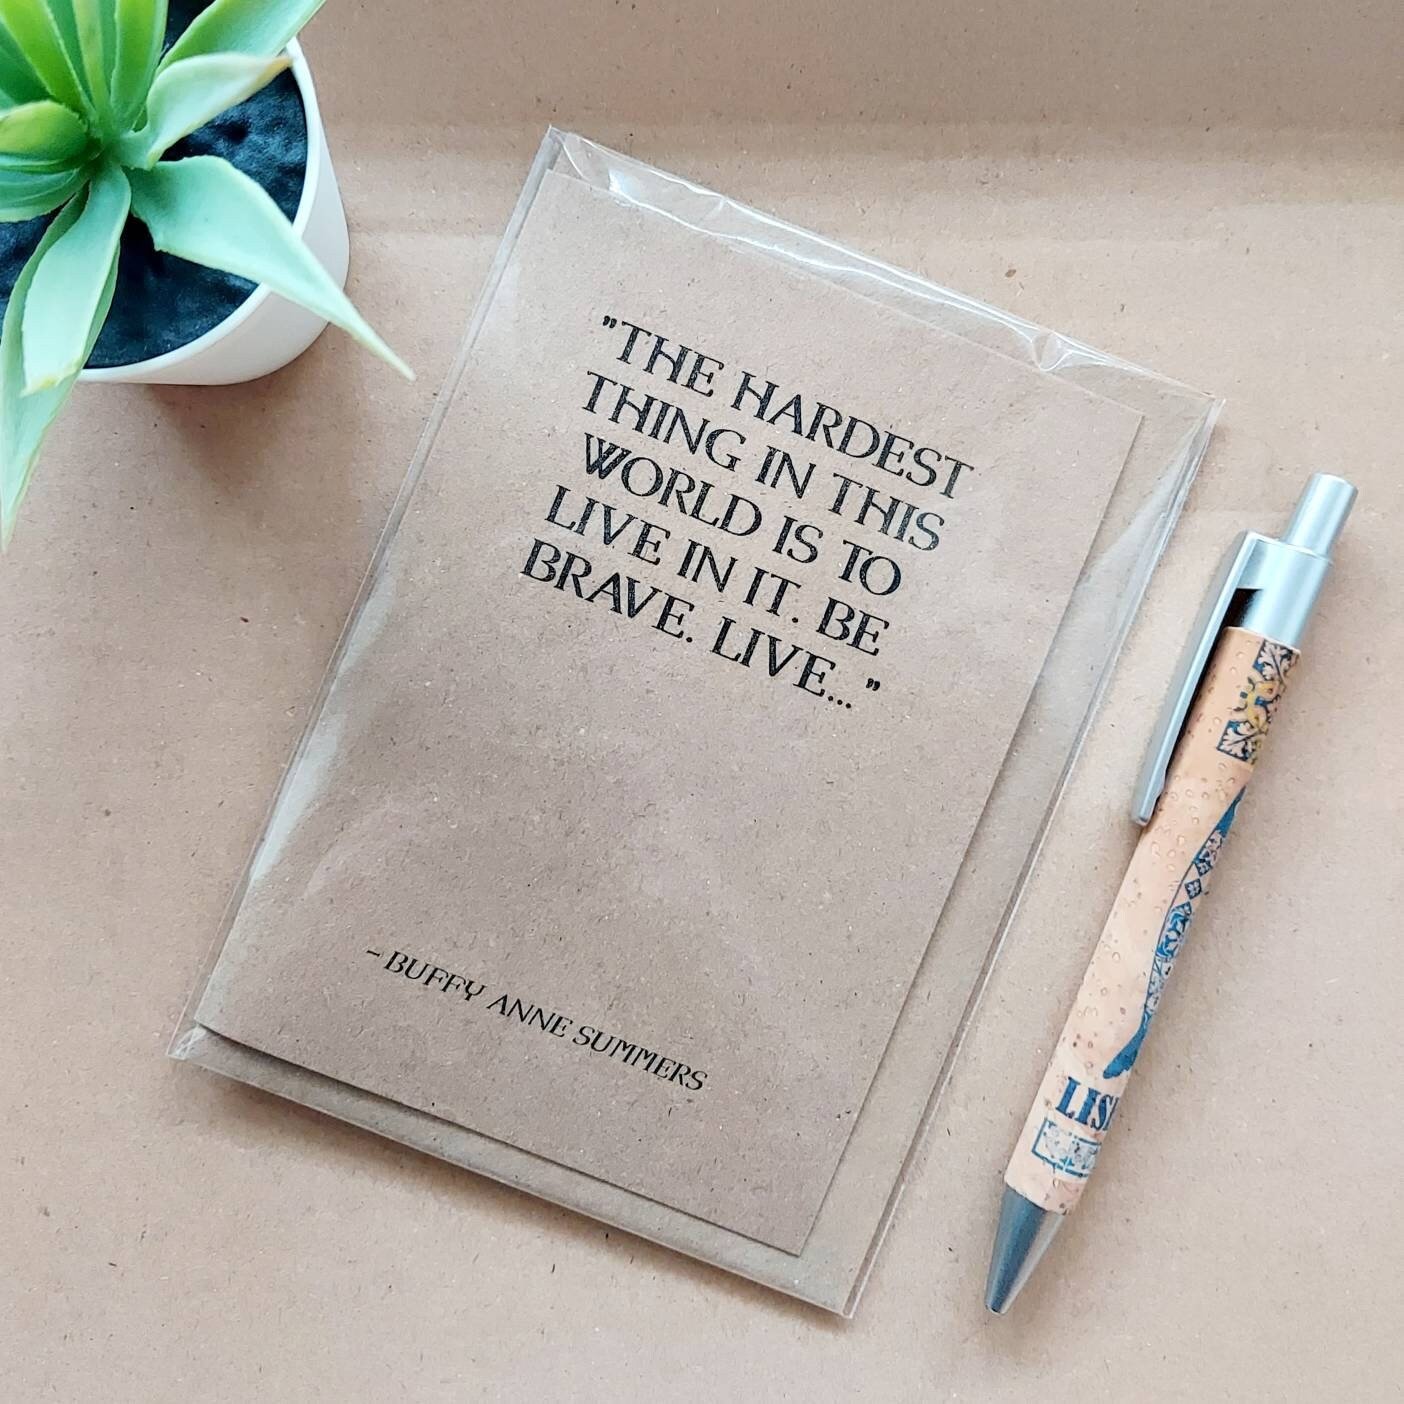 "THE HARDEST
THING IN THIS
WORLD IS TO
LIVE IN IT. BE
BRAVE. LIVE..."
- BUFFY ANNE SUMMERS